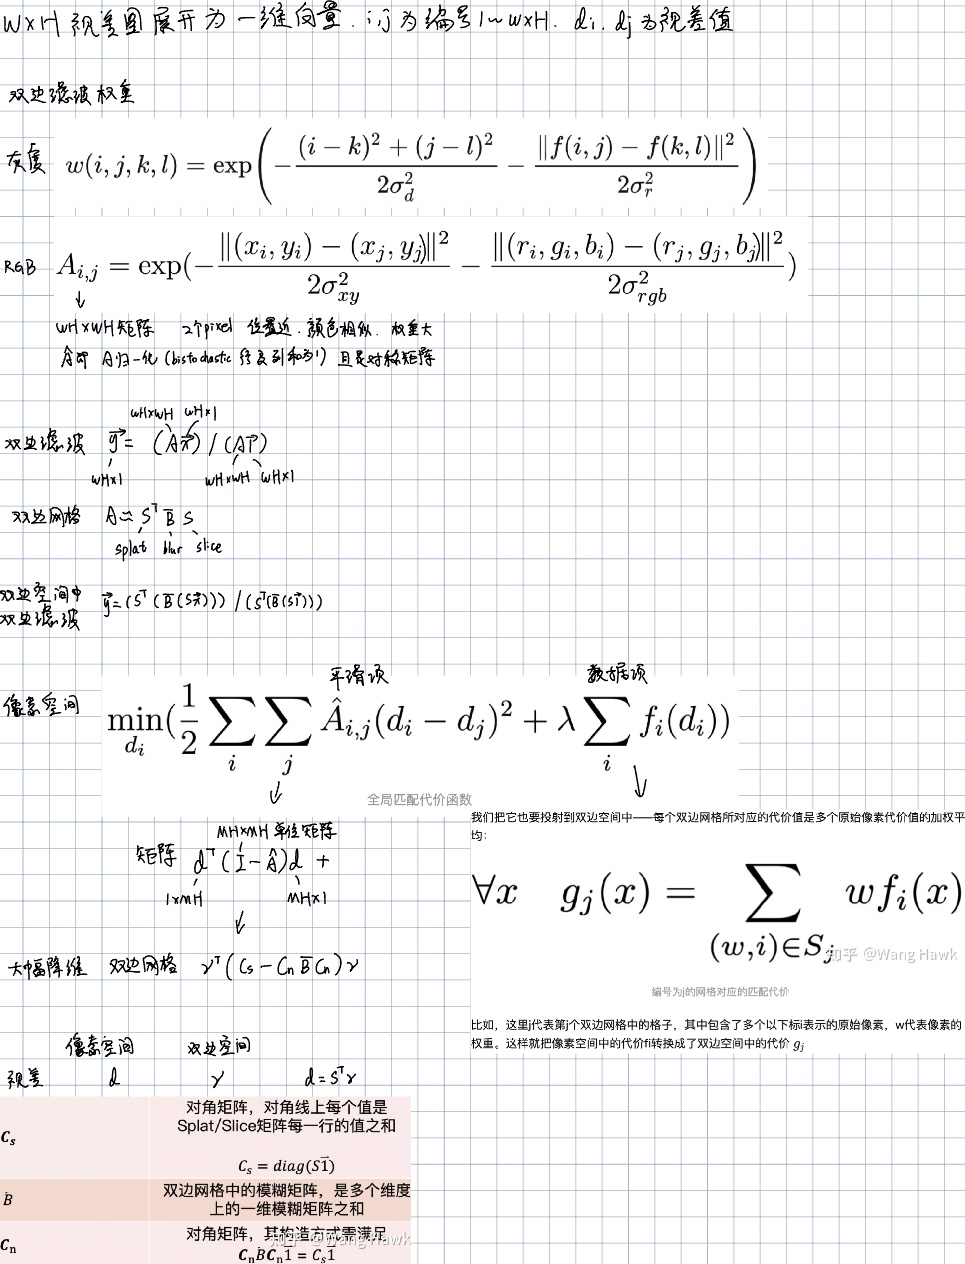 W×H 视差图展开为一维向量. i,j为编号1~W×H. di, dj为视差值
双边滤波权重
灰度 w(i, j, k, l) = exp(−((i − k)² + (j − l)²)/(2σ_d²) − ‖f(i, j) − f(k, l)‖²/(2σ_r²))
RGB A_{i,j} = exp(−‖(x_i, y_i) − (x_j, y_j)‖²/(2σ_{xy}²) − ‖(r_i, g_i, b_i) − (r_j, g_j, b_j)‖²/(2σ_{rgb}²))
↓
WH×WH矩阵 2个pixel 位置近. 颜色相似. 权重大
Â即 A归一化 (bistochastic 行及列和为1) 且是对称矩阵
WH×WH WH×1
双边滤波 y⃗ = (Ax⃗) / (A1⃗)
WH×1 WH×WH WH×1
双边网格 A ≈ Sᵀ B̄ S
splat blur slice
双边空间中
双边滤波 y⃗=(Sᵀ(B̄(Sx⃗))) / (Sᵀ(B̄(S1⃗)))
平滑项 数据项
像素空间 min_{d_i}(1/2 ∑_i ∑_j Â_{i,j}(d_i − d_j)² + λ ∑_i f_i(d_i))
↓ ↓
全局匹配代价函数
我们把它也要投射到双边空间中——每个双边网格所对应的代价值是多个原始像素代价值的加权平
均:
MH×MH 单位矩阵
矩阵 dᵀ(I−Â)d +
1×MH MH×1
∀x g_j(x) = ∑_{(w,i)∈S_j} w f_i(x)
知乎 @Wang Hawk
↓
大幅降维 双边网格 γᵀ(Cs − Cn B̄ Cn)γ
编号为j的网格对应的匹配代价
比如，这里j代表第j个双边网格中的格子，其中包含了多个以下标i表示的原始像素，w代表像素的
权重。这样就把像素空间中的代价fi转换成了双边空间中的代价 g_j
像素空间 双边空间
视差 d γ d=Sᵀγ
C_s 对角矩阵，对角线上每个值是
Splat/Slice矩阵每一行的值之和
C_s = diag(S1⃗)
B̄ 双边网格中的模糊矩阵，是多个维度
上的一维模糊矩阵之和
C_n 对角矩阵，其构造方式需满足
C_nB̄C_n1⃗ = C_s1⃗
知乎 @Wang Hawk